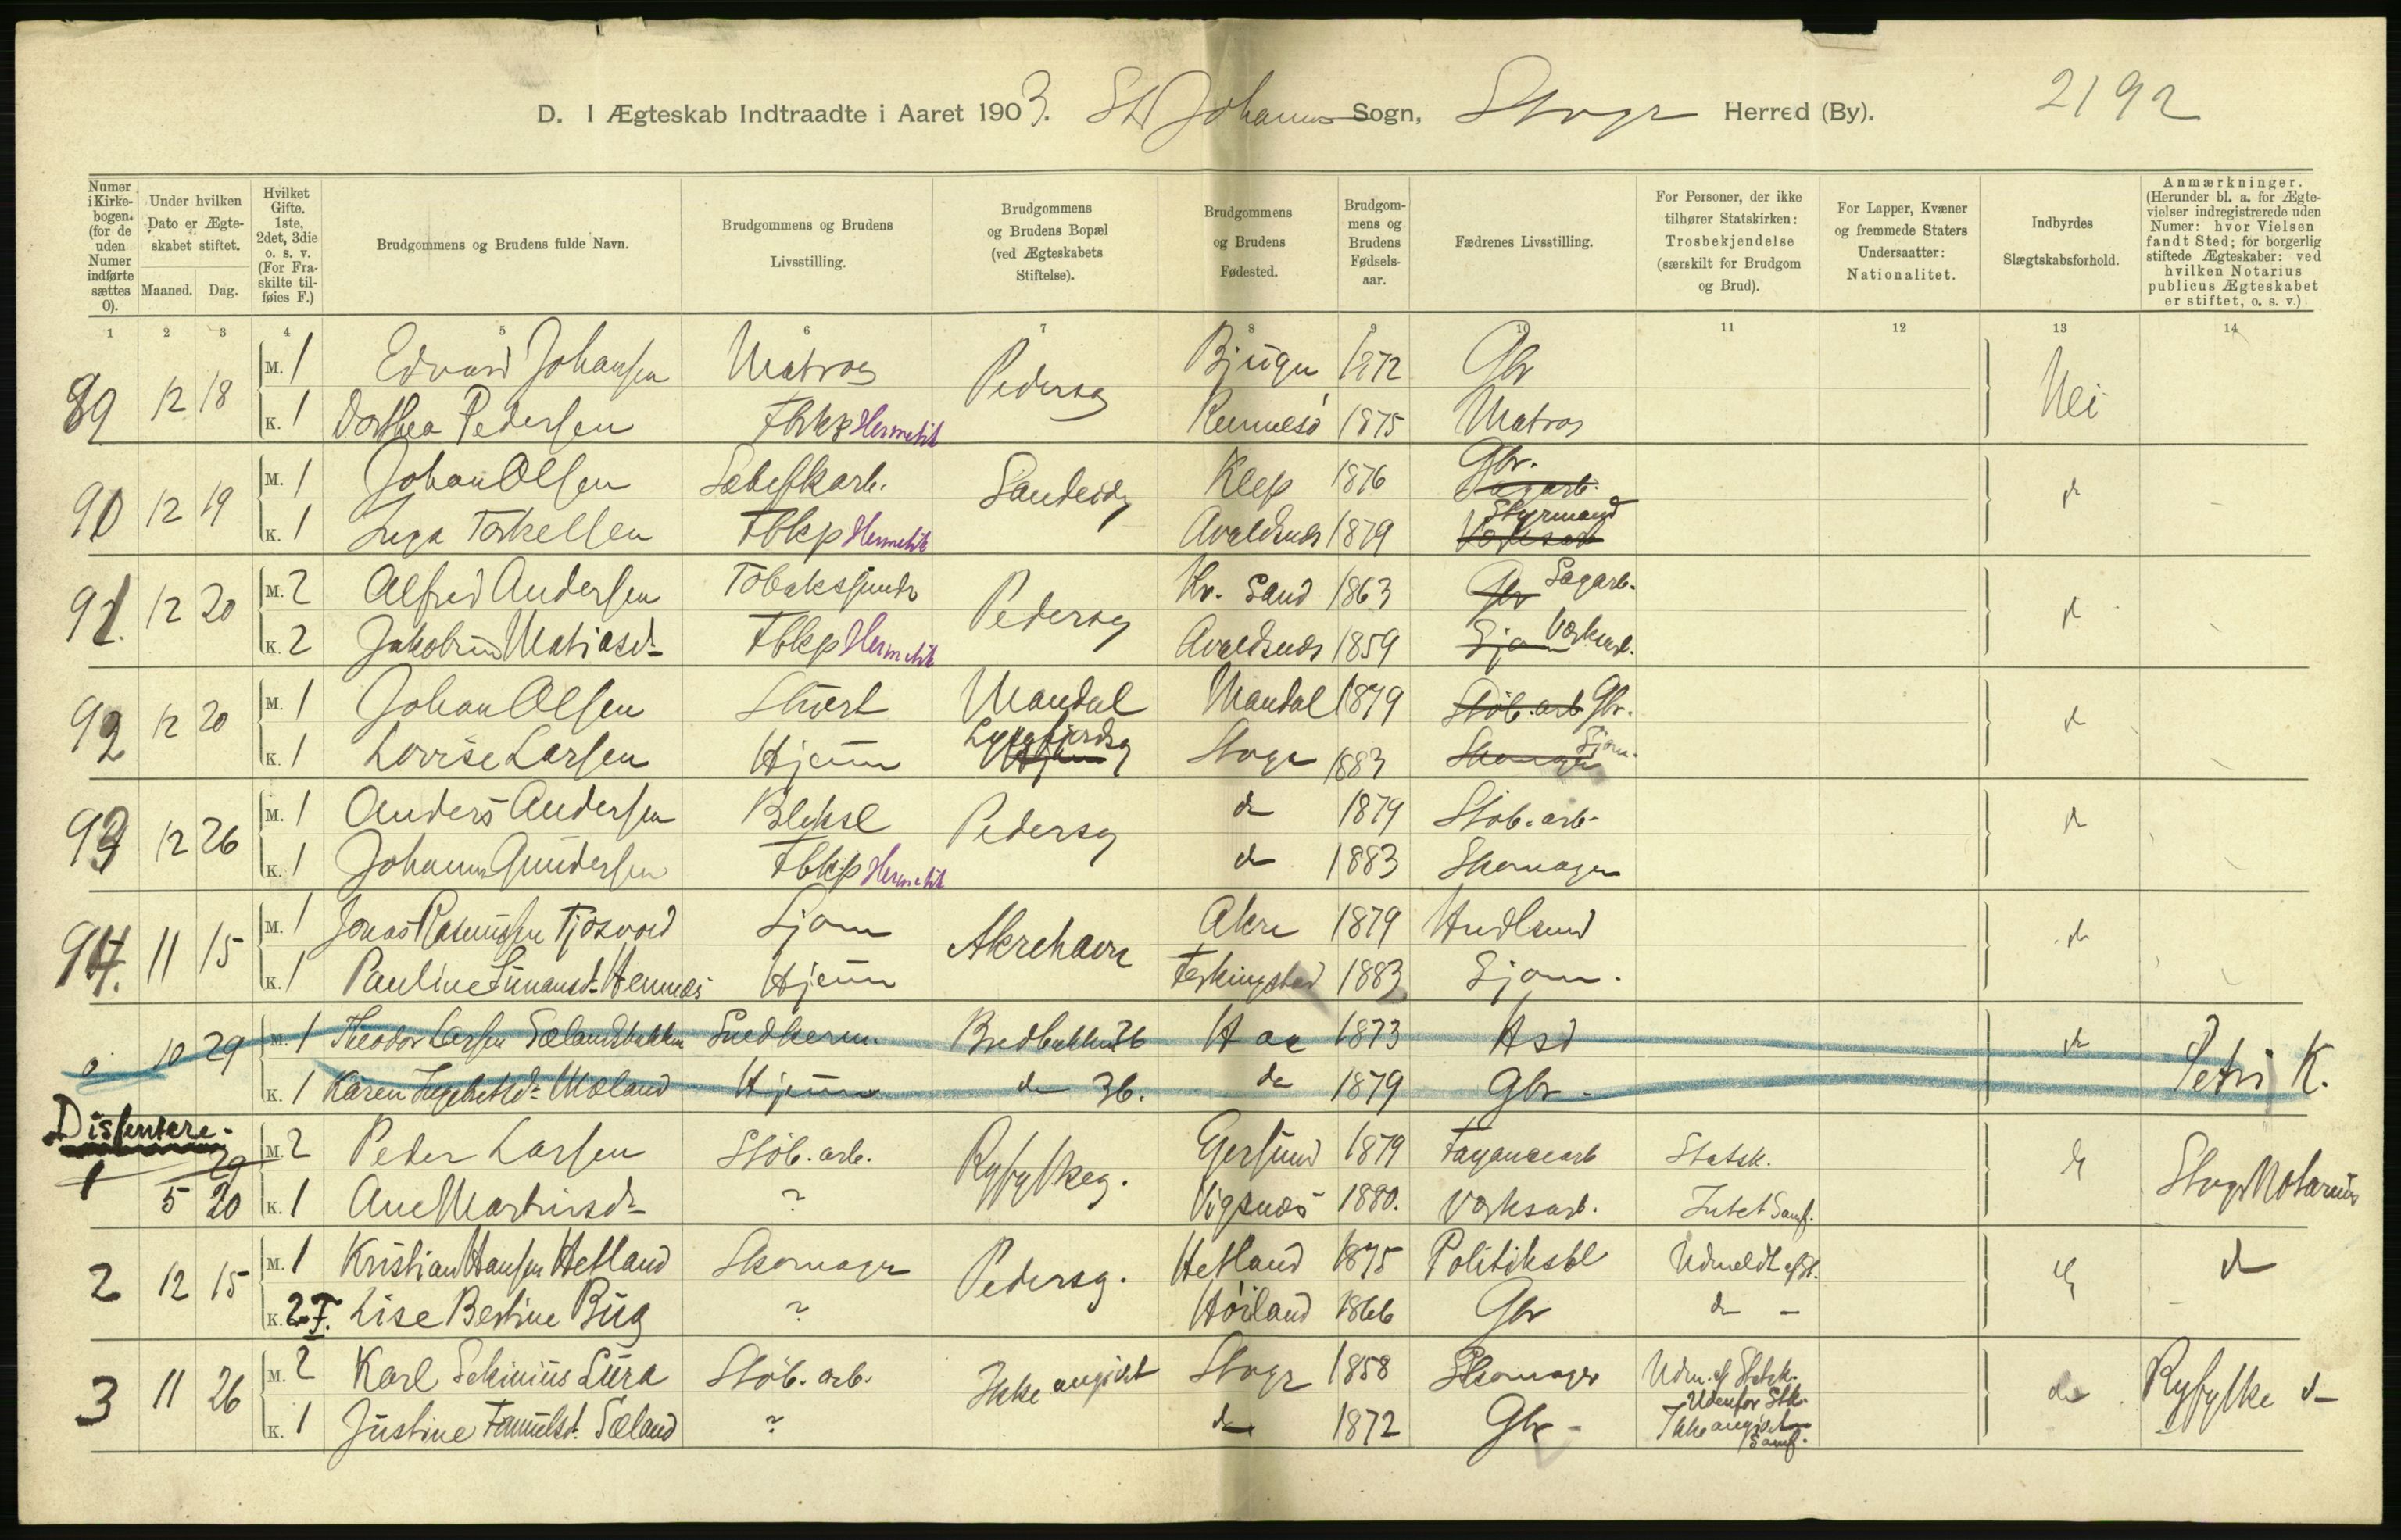 D. I Ægteskab Indtraadte i Aaret 1903. St Johannes Sogn, Stvgr Herred (By). 2192
Numer i Kirkebogen. (for de uden Numer indførte sættes 0).
Under hvilken Dato er Ægteskabet stiftet.
Maaned. Dag.
Hvilket Gifte. 1ste, 2det, 3die o. s. v. (For Fraskilte tilføies F.)
Brudgommens og Brudens fulde Navn.
Brudgommens og Brudens Livsstilling.
Brudgommens og Brudens Bopæl (ved Ægteskabets Stiftelse).
Brudgommens og Brudens Fødested.
Brudgommens og Brudens Fødselsaar.
Fædrenes Livsstilling.
For Personer, der ikke tilhører Statskirken: Trosbekjendelse (særskilt for Brudgom og Brud).
For Lapper, Kvæner og fremmede Staters Undersaatter: Nationalitet.
Indbyrdes Slægtskabsforhold.
Anmærkninger. (Herunder bl. a. for Ægtevielser indregistrerede uden Numer: hvor Vielsen fandt Sted; for borgerlig stiftede Ægteskaber: ved hvilken Notarius publicus Ægteskabet er stiftet, o. s. v.)
1 2 3 4 5 6 7 8 9 10 11 12 13 14
89 12 18 M. 1 Edvard Johansen Matros Pedersg Bjugn 1872 Gbr Nei
K. 1 Dorthea Pedersen Fbkp Hermetik Rennesö 1875 Matros
90 12 19 M. 1 Johan Olsen Sæbefkarb. Sandeidg Klep 1876 Gbr. d
K. 1 Inga Torkelsen Fbkp Hermetik Avaldsnes 1879 Styrmand
91. 12 20 M. 2 Alfred Andersen Tobakspinder Pedersg Kr. Sand 1863 Gbr Sagarb. d
K. 2 Jakobine Matiasd. Fbkp Hermetik Avaldsnes 1859 Sjom Værksarb.
92 12 20 M. 1 Johan Olsen Stuert Mandal Mandal 1879 Stöb. arb Gbr. d
K. 1 Lovise Larsen Hjemme Lysefjordsg Stvgr 1883 Skomager Sjom.
93 12 26 M. 1 Anders Andersen Bleksl Pedersg d 1879 Stöb. arb. d
K. 1 Johanne Gundersen Fbkp Hermetik d 1883 Skomager
94. 11 15 M. 1 Jonas Rasmussen Tjosvold Sjom Akrehavn Akre 1879 Hndlsmd d
K. 1 Pauline Simonsd. Hemnes Hjemme Ferkingstad 1883 Sjom.
0 10 29 M. 1 Theodor Larsen Sælandsbakken Snedkerm. Bredbakken 36 Haa 1873 Hsd d Petri K.
K. 1 Karen Ingebretsd. Moland Hjemme d 36. d 1879 Gbr.
Dissentere.
1 29 M. 2 Peder Larsen Stöb. arb. Ryfylkeg. Egersund 1879 Fayancearb Statsk. d Stvgr Notarius
5 20 K. 1 Ane Martinsd. ? Vigsnes 1880. Værksarb. Intet Samf.
2 12 15 M. 1 Kristian Hansen Hetland Skomager Pedersg. Hetland 1875 Politiksbl Udmeldt af St. d d
K. 2. F. Lise Bertine Bug ? Höiland 1866 Gbr d -
3 11 26 M. 2 Karl Sekinius Lura Stöb. arb. Ikke angivet Stvgr 1858 Skomager Udm. af Statsk. d Ryfylke d
K. 1 Justine Samuelsd. Sæland ? d 1872 Gbr - Udenfor Stk.
Ikke angivet Samf.